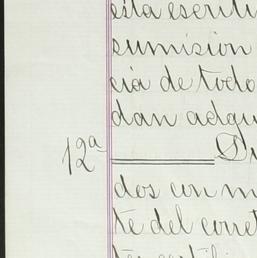 esta escrit
sumision
cia de todo
dan adqu
12ª
dos con m
te del corret